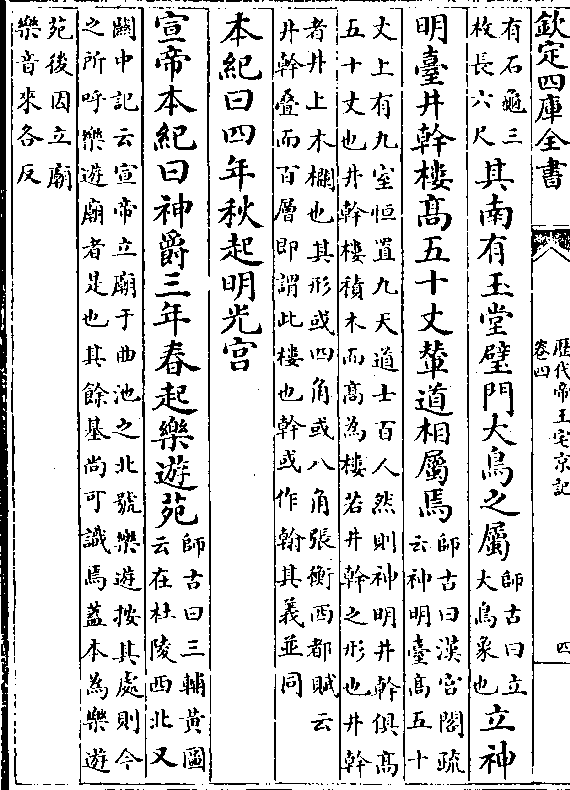 欽定四庫全書
歴代帝王宅京記
卷四
四
有石龜三
枚長六尺
其南有玉堂璧門大鳥之屬
師古曰立
大鳥象也
立神
明臺井幹樓髙五十丈輦道相屬焉
師古曰漢宫閣疏
云神明臺髙五十
丈上有九室恒置九天道士百人然則神明井幹俱髙
五十丈也井幹樓積木而髙為樓若井幹之形也井幹
者井上木欄也其形或四角或八角張衡西都賦云
井幹叠而百層即謂此樓也幹或作翰其義並同
本紀曰四年秋起明光宫
宣帝本紀曰神爵三年春起樂遊苑
師古曰三輔黄圖
云在杜陵西北又
闗中記云宣帝立廟于曲池之北號樂遊按其處則今
之所呼樂遊廟者是也其餘基尚可識焉蓋本為樂遊
苑後因立廟
樂音來各反